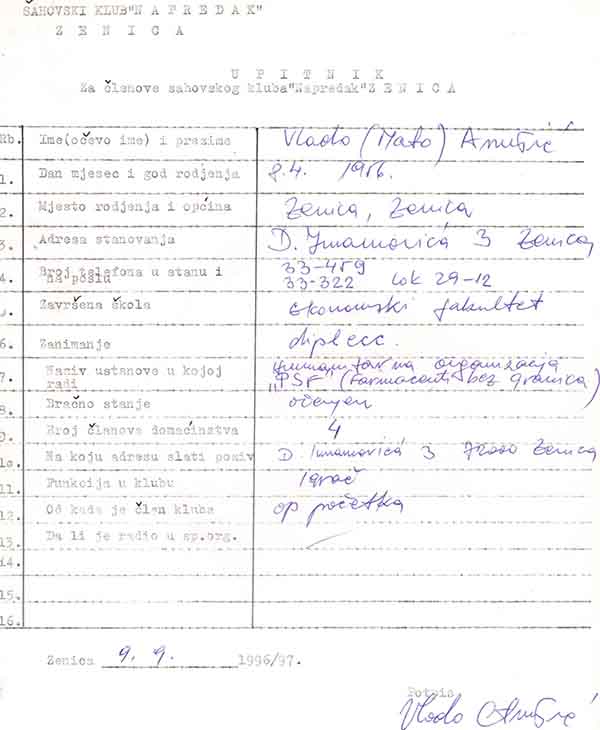 ŠAHOVSKI KLUB"N A P R E D A K"
Z E N I C A
U P I T N I K
Za članove sahovskog kluba"Napredak"Z E N I C A
Rb. Ime(očevo ime) i prezime Vlado (Mato) Anušić
1. Dan mjesec i god rodjenja 8.4. 1956.
2. Mjesto rodjenja i općina Zenica, Zenica
3. Adresa stanovanja D. Imamovića 3 Zenica
4. Broj telefona u stanu i 33-459
na poslu 33-322 lok 29-12
5. Završena škola Ekonomski fakultet
6. Zanimanje dipl ecc.
7. Naziv ustanove u kojoj Humanitarna organizacija
radi "PSF" (Farmaceuti bez granica)
8. Bračno stanje oženjen
9. Broj članova domaćinstva 4
10. Na koju adresu slati poziv D. Imamovića 3 72000 Zenica
11. Funkcija u klubu igrač
12. Od kada je član kluba od početka
13. Da li je radio u sp.org.
14.
15.
16.
Zenica 9. 9. 1996/97.
Potpis
Vlado Anušić